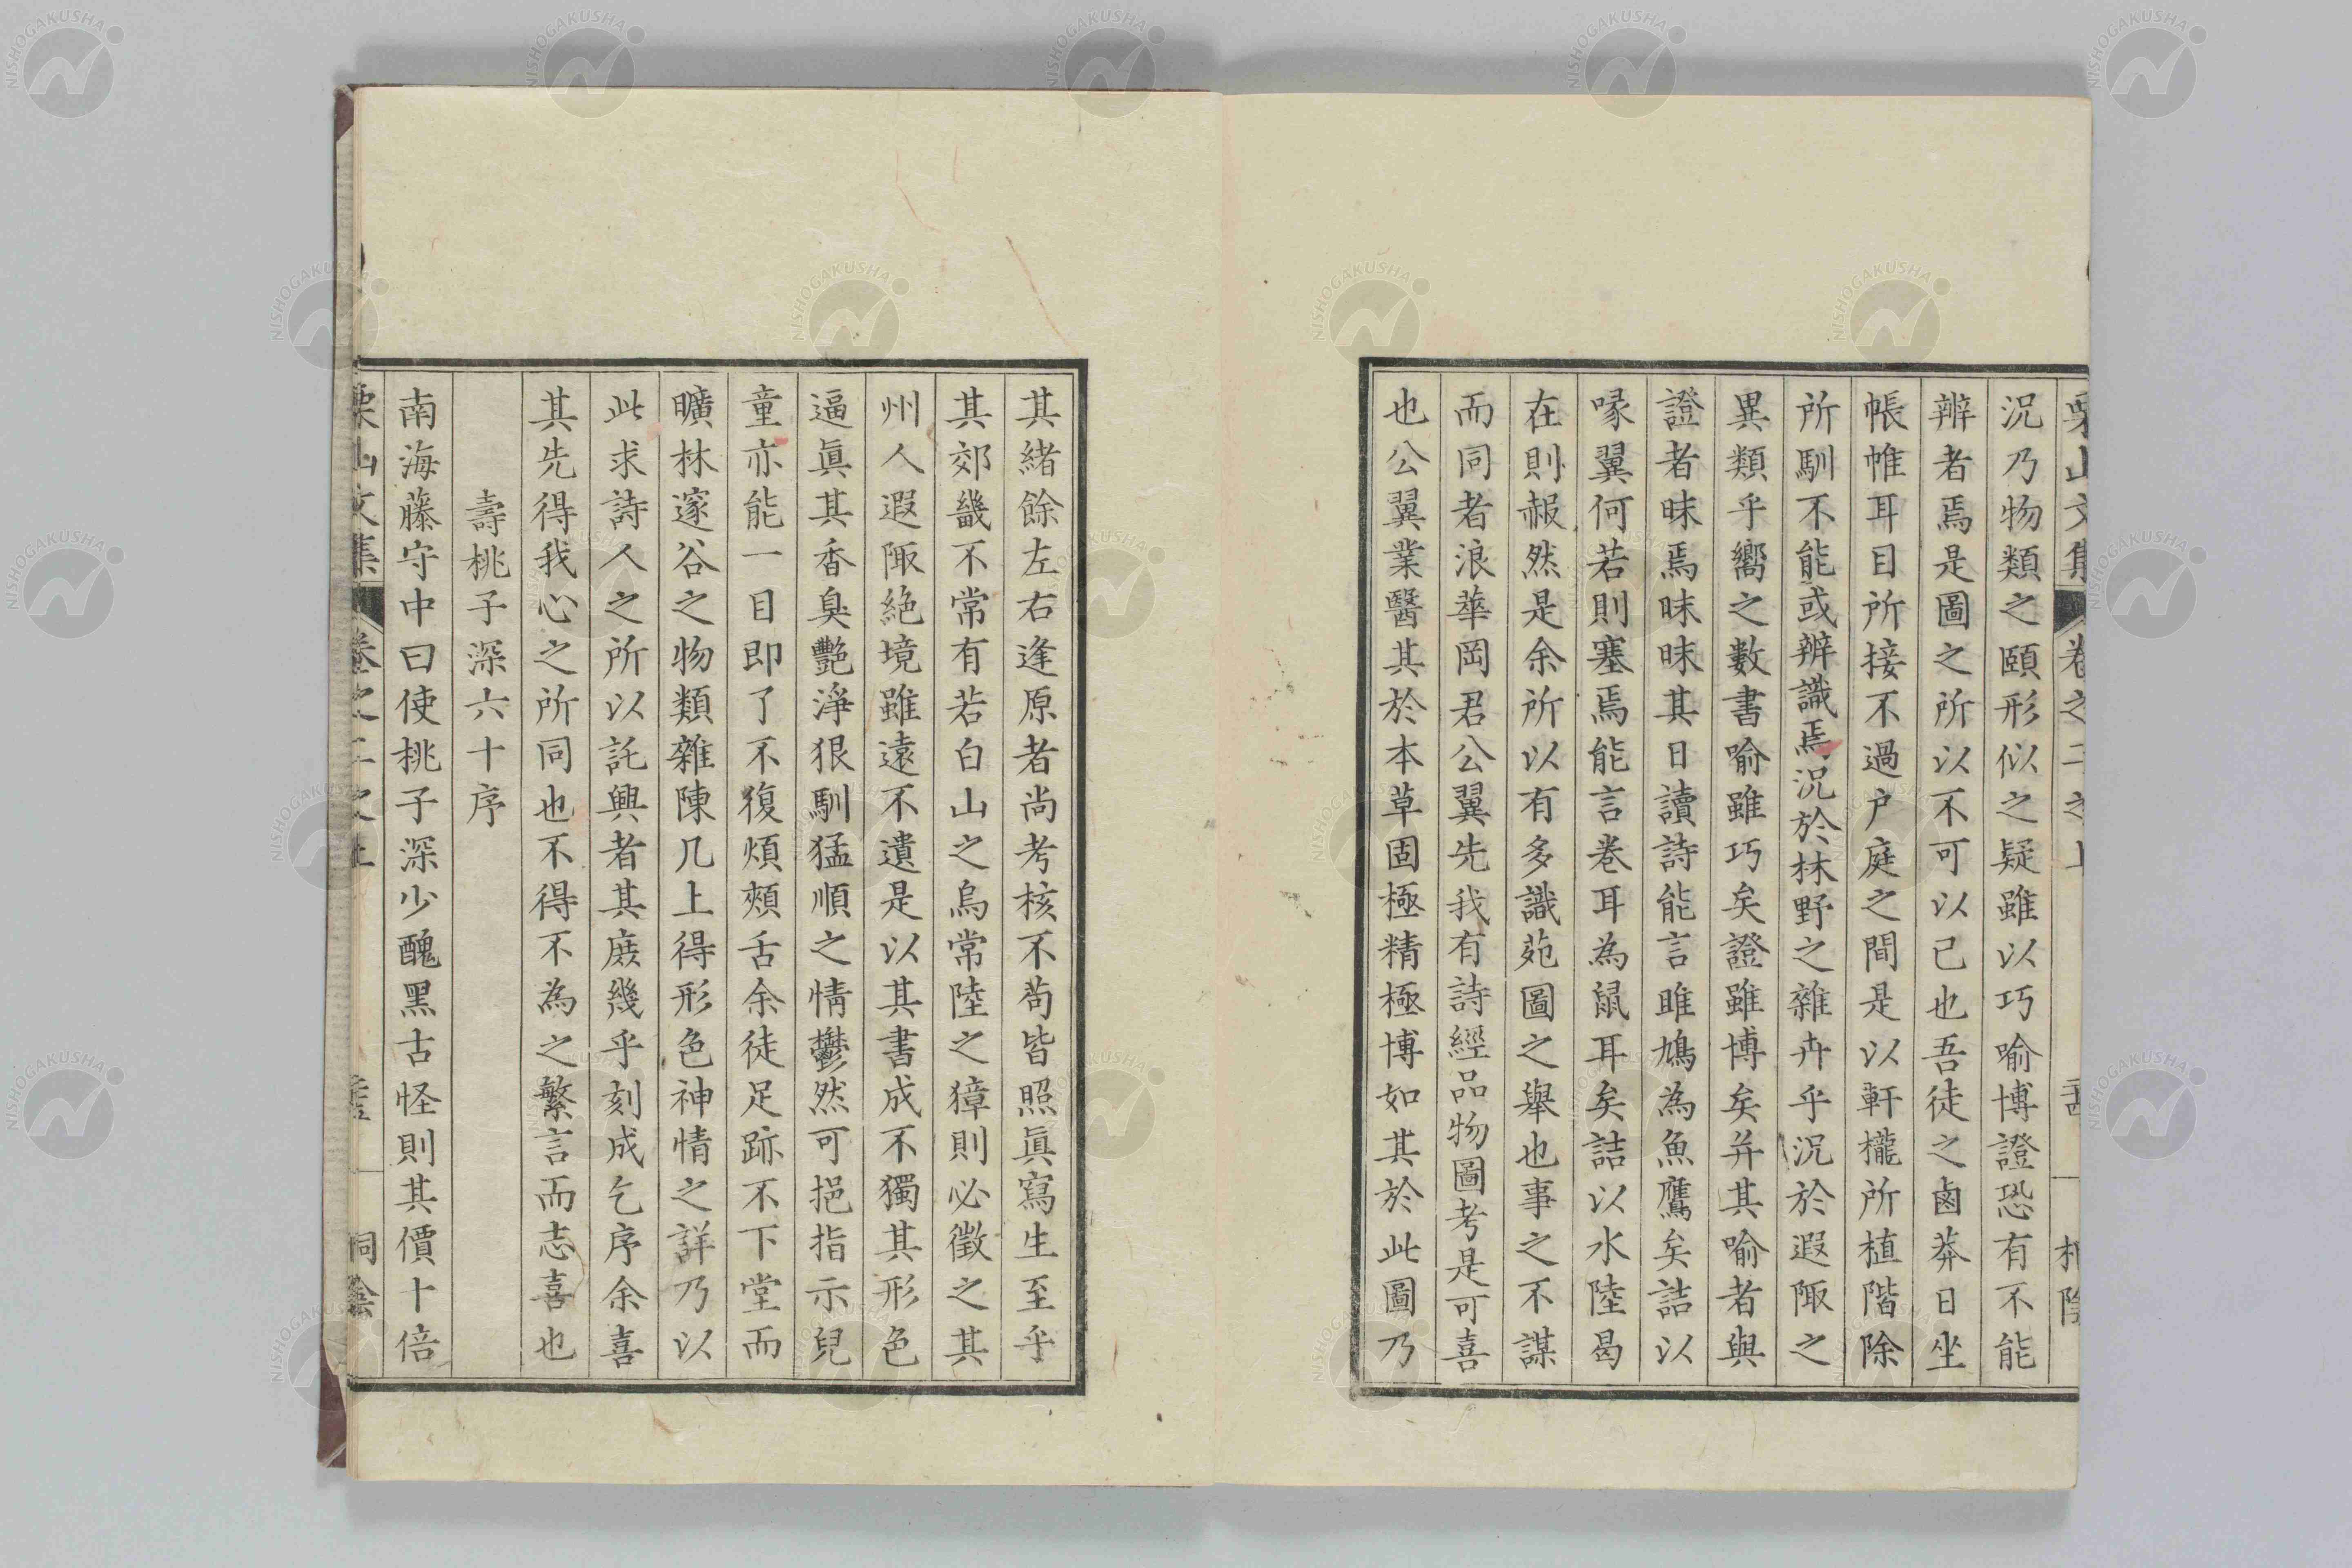 栗山文集 卷之二之上
況乃物類之頤形似之疑雖以巧喻博證恐有不能
辨者焉是圖之所以不可以已也吾徒之鹵莽日坐
帳帷耳目所接不過户庭之間是以軒櫳所植階除
所馴不能或辨識焉況於林野之雜卉乎況於遐陬之
異類乎嚮之數書喻雖巧矣證雖博矣并其喻者與
證者昧焉昧昧其日讀詩能言雎鳩為魚鷹矣詰以
喙翼何若則塞焉能言卷耳為鼠耳矣詰以水陸曷
在則赧然是余所以有多識苑圖之舉也事之不謀
而同者浪華岡君公翼先我有詩經品物圖考是可喜
也公翼業醫其於本草固極精極博如其於此圖乃
其緒餘左右逢原者尚考核不苟皆照眞寫生至乎
其郊畿不常有若白山之烏常陸之獐則必徵之其
州人遐陬絶境雖遠不遺是以其書成不獨其形色
逼眞其香臭艷淨狠馴猛順之情鬱然可挹指示兒
童亦能一目即了不復煩頰舌余徒足跡不下堂而
曠林邃谷之物類雜陳几上得形色神情之詳乃以
此求詩人之所以託興者其庻幾乎刻成乞序余喜
其先得我心之所同也不得不為之繁言而志喜也
壽桃子深六十序
南海藤守中曰使桃子深少醜黑古怪則其價十倍
栗山文集 卷之二之上